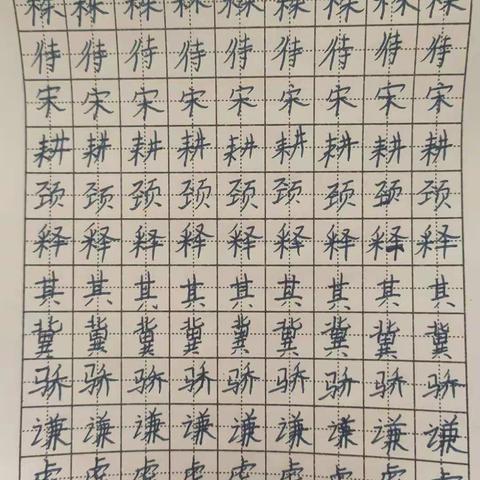 株株株株株株株株株
待待待待待待待待待
宋宋宋宋宋宋宋宋宋
耕耕耕耕耕耕耕耕耕
颈颈颈颈颈颈颈颈颈
释释释释释释释释释
其其其其其其其其其
冀冀冀冀冀冀冀冀冀
骄骄骄骄骄骄骄骄骄
谦谦谦谦谦谦谦谦谦